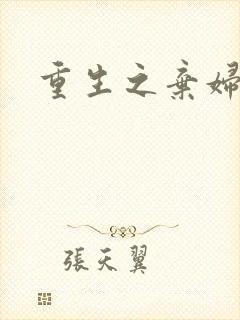 重生之棄婦
張天翼